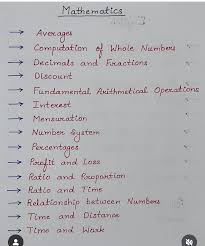 Mathematics
→ Averages
→ Computation of Whole Numbers
→ Decimals and Fractions
→ Discount
→ Fundamental Arithmetical Operations
→ Interest
→ Mensuration
→ Number System
→ Percentages
→ Profit and Loss
→ Ratio and Proportion
→ Ratio and Time
→ Relationship between Numbers
→ Time and Distance
→ Time and Work